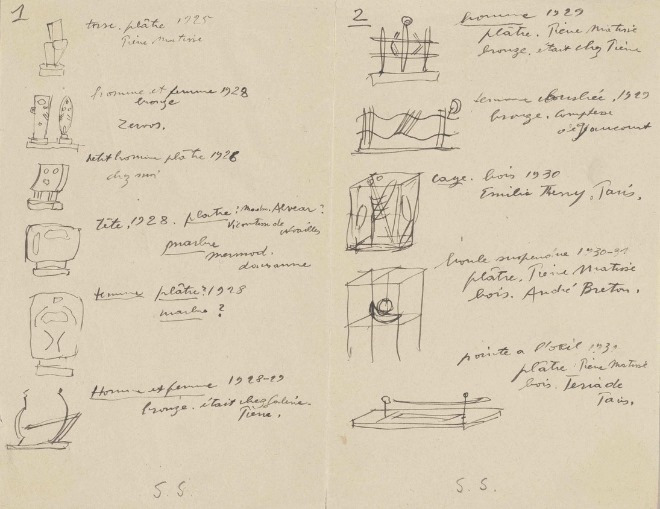 1
torse. plâtre 1925
Pierre Matisse
homme et femme 1928
bronze
Zervos.
petit homme plâtre 1926
chez moi
tête, 1928. plâtre: Alvear?
Vicomtesse de Noailles
marbre
mermod.
Lausanne
femme plâtre? 1928
marbre ?
Homme et femme 1928-29
bronze. était chez Galerie.
Pierre.
S. S.
2
homme 1929
plâtre. Pierre Matisse
bronze. était chez Pierre
femme couchée, 1929
bronze. Comtesse
d'Hancourt
cage. bois 1930
Emilio Terry, Paris.
boule suspendue 1930-31
plâtre. Pierre Matisse
bois. André Breton.
pointe a l'oeil 1931
plâtre Pierre Matisse
bois. Teriade
Paris.
S. S.